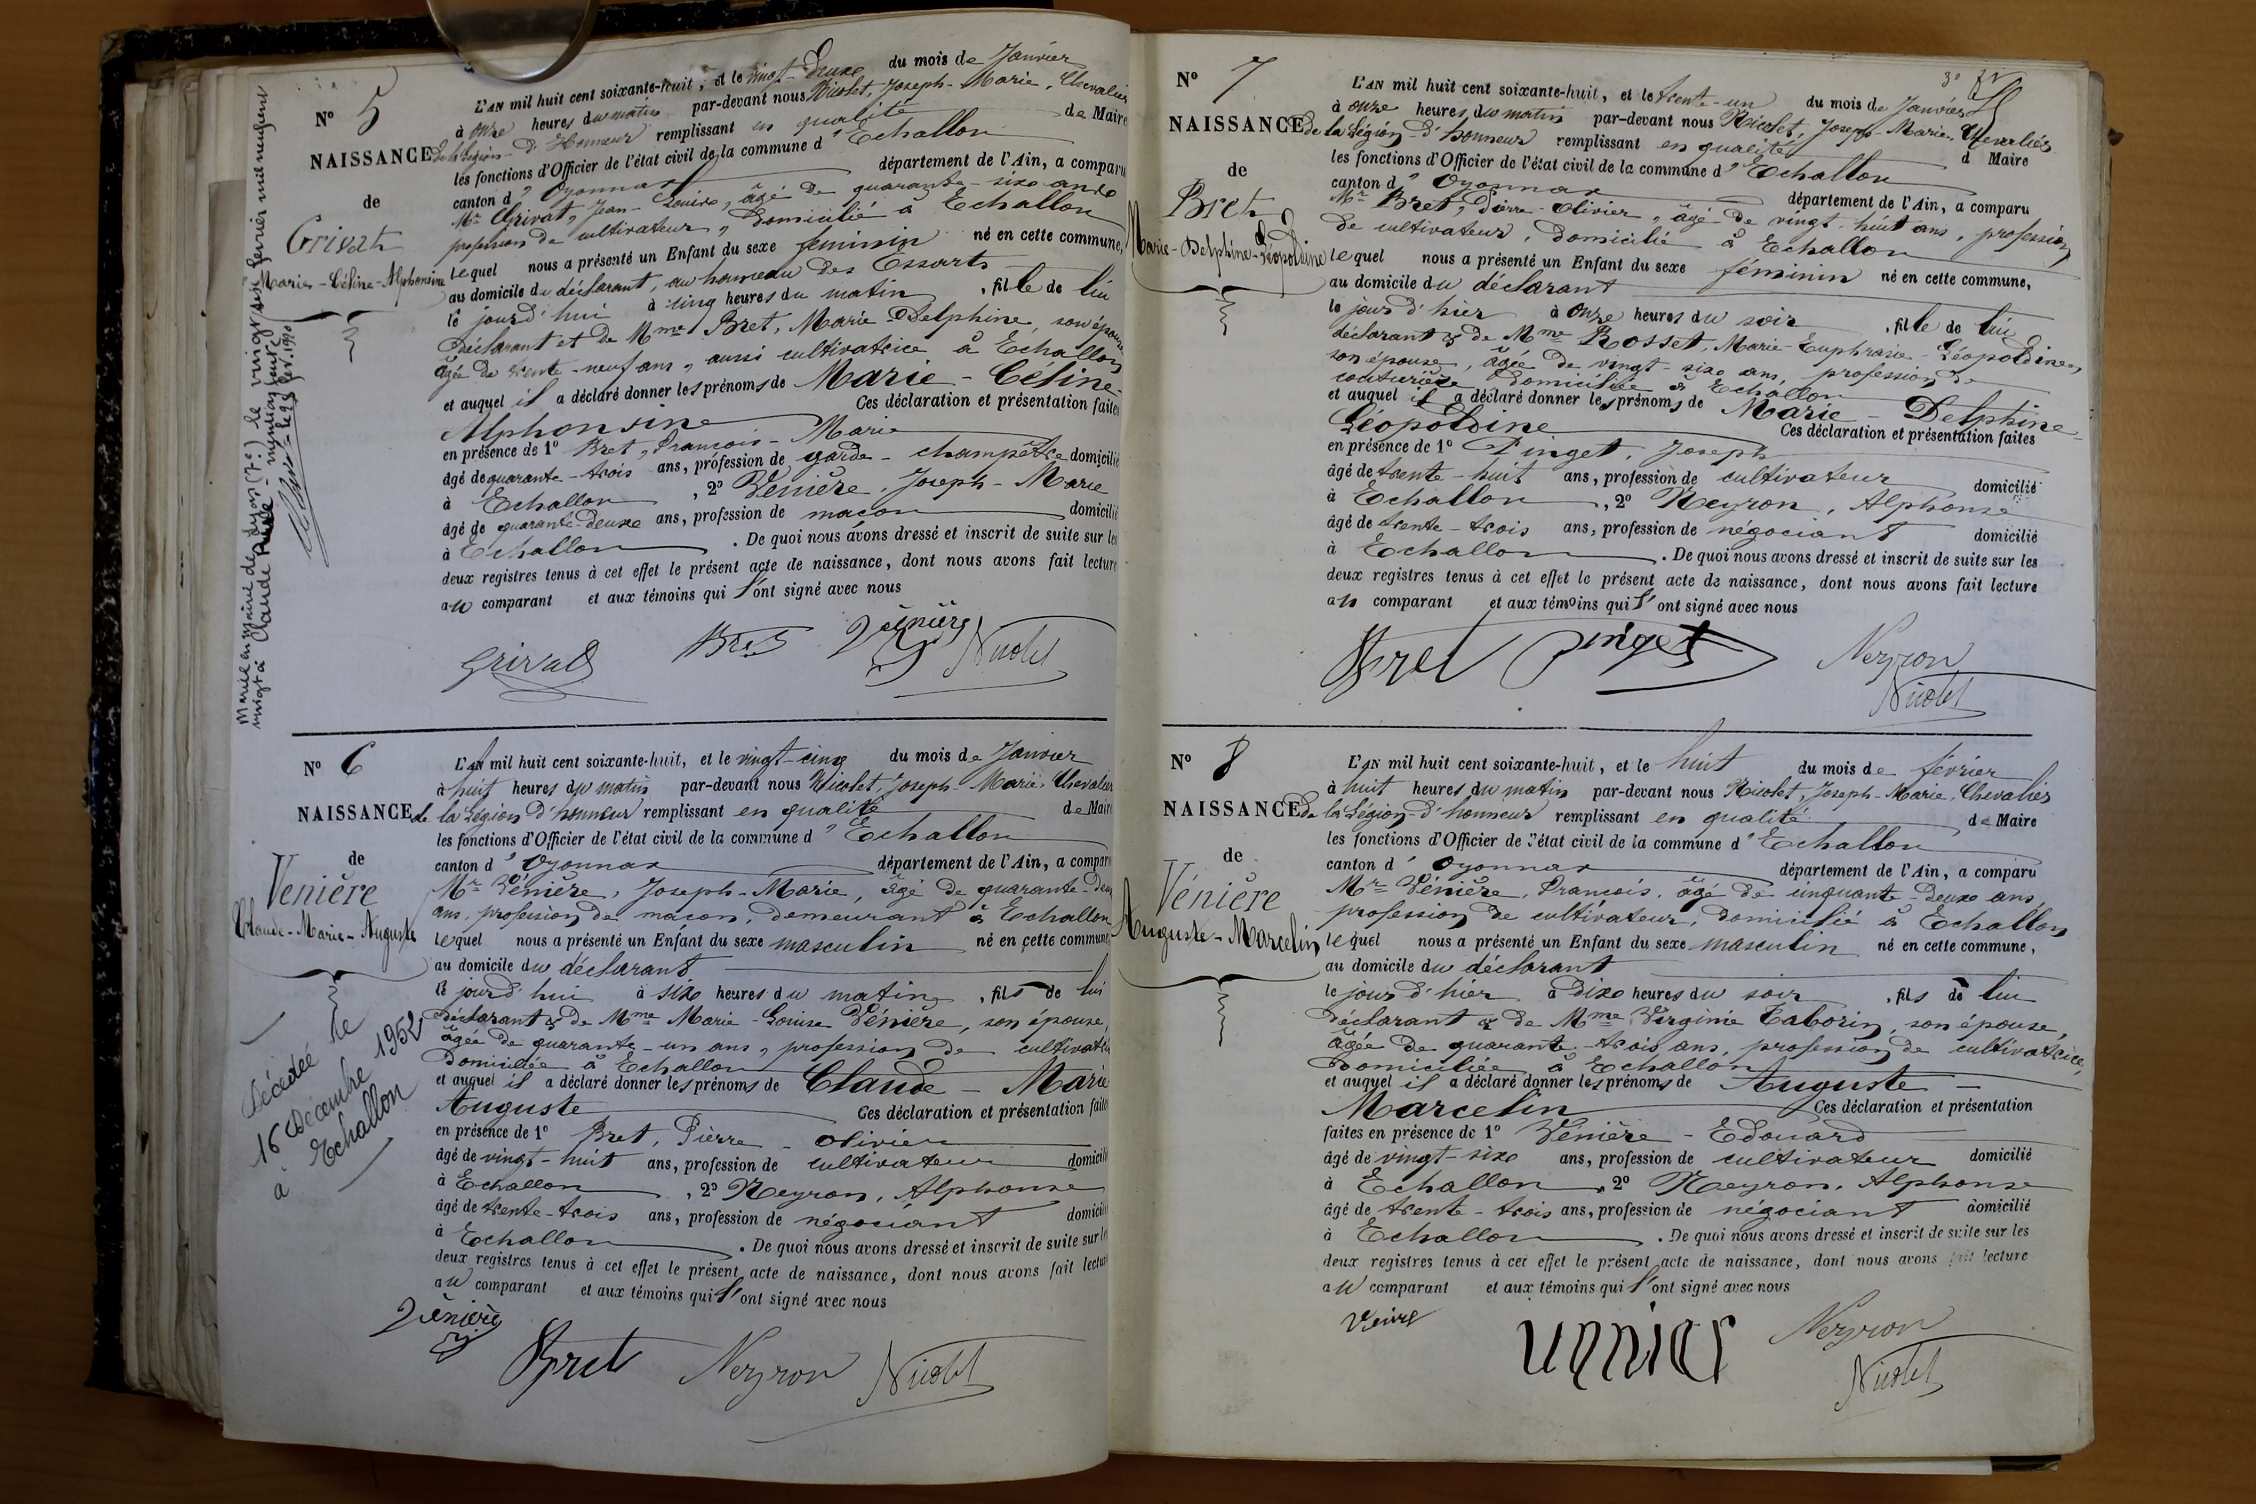 N° 5
NAISSANCE
de
Grivat
Marie-Céline-Alphonsine
Marié en mairie de Lyon (7e) le vingt six février mil neuf cent
vingt à Claude
L'AN mil huit cent soixante-huit, et le vingt-deux du mois de Janvier
à onze heures du matin par-devant nous Nicolet, Joseph-Marie, Chevalier
de la Légion d'Honneur remplissant en qualité de Maire
les fonctions d'Officier de l'état civil de la commune d'Echallon
canton d'Oyonnax département de l'Ain, a comparu
Mr Grivat, Jean-Louis, âgé de quarante-six ans
profession de cultivateur, domicilié à Echallon
lequel nous a présenté un Enfant du sexe féminin né en cette commune,
au domicile du déclarant, au hameau des Essarts
le jourd'hui à cinq heures du matin, fille de lui
déclarant et de Mme Bret, Marie Delphine, son épouse
âgée de trente-neuf ans, aussi cultivatrice à Echallon
et auquel il a déclaré donner les prénoms de Marie-Céline-
Alphonsine Ces déclaration et présentation faites
en présence de 1° Bret, François-Marie
âgé de quarante-trois ans, profession de garde-champêtre domicilié
à Echallon, 2° Venière, Joseph-Marie
âgé de quarante-deux ans, profession de maçon domicilié
à Echallon. De quoi nous avons dressé et inscrit de suite sur les
deux registres tenus à cet effet le présent acte de naissance, dont nous avons fait lecture
au comparant et aux témoins qui l'ont signé avec nous
Grivat Bret Vénière Nicolet
N° 6
NAISSANCE
de
Venière
Claude-Marie-Auguste
Décédé le
16 Décembre 1952
à Echallon
L'AN mil huit cent soixante-huit, et le vingt-cinq du mois de Janvier
à huit heures du matin par-devant nous Nicolet, Joseph-Marie, Chevalier
de la Légion d'honneur remplissant en qualité de Maire
les fonctions d'Officier de l'état civil de la commune d'Echallon
canton d'Oyonnax département de l'Ain, a comparu
Mr Vénière, Joseph-Marie, âgé de quarante-deux
ans, profession de maçon, demeurant à Echallon
lequel nous a présenté un Enfant du sexe masculin né en cette commune,
au domicile du déclarant
le jourd'hui à six heures du matin, fils de lui
déclarant & de Mme Marie-Louise Vénière, son épouse,
âgée de quarante-un ans, profession de cultivatrice
domiciliée à Echallon
et auquel il a déclaré donner les prénoms de Claude-Marie
Auguste Ces déclaration et présentation faites
en présence de 1° Bret, Pierre-Olivier
âgé de vingt-huit ans, profession de cultivateur domicilié
à Echallon, 2° Neyron, Alphonse
âgé de trente-trois ans, profession de négociant domicilié
à Echallon. De quoi nous avons dressé et inscrit de suite sur les
deux registres tenus à cet effet le présent acte de naissance, dont nous avons fait lecture
au comparant et aux témoins qui l'ont signé avec nous
Vénière Bret Neyron Nicolet
N° 7
NAISSANCE
de
Bret
Marie-Delphine-Léopoldine
L'AN mil huit cent soixante-huit, et le trente-un du mois de Janvier
à onze heures du matin par-devant nous Nicolet, Joseph-Marie, Chevalier
de la Légion d'honneur remplissant en qualité d Maire
les fonctions d'Officier de l'état civil de la commune d'Echallon
canton d'Oyonnax département de l'Ain, a comparu
Mr Bret, Pierre-Olivier, âgé de vingt-huit ans, profession
de cultivateur, domicilié à Echallon
lequel nous a présenté un Enfant du sexe féminin né en cette commune,
au domicile du déclarant
le jour d'hier à onze heures du soir, fille de lui
déclarant & de Mme Rosset, Marie-Euphrasie-Léopoldine,
son épouse, âgée de vingt-six ans, profession de
couturière domiciliée à Echallon
et auquel il a déclaré donner les prénoms de Marie-Delphine-
Léopoldine Ces déclaration et présentation faites
en présence de 1° Pinget, Joseph
âgé de trente-huit ans, profession de cultivateur domicilié
à Echallon, 2° Neyron, Alphonse
âgé de trente-trois ans, profession de négociant domicilié
à Echallon. De quoi nous avons dressé et inscrit de suite sur les
deux registres tenus à cet effet le présent acte de naissance, dont nous avons fait lecture
au comparant et aux témoins qui l'ont signé avec nous
Bret Pinget Neyron
Nicolet
N° 8
NAISSANCE
de
Vénière
Auguste-Marcelin
L'AN mil huit cent soixante-huit, et le huit du mois de février
à huit heures du matin par-devant nous Nicolet, Joseph-Marie, Chevalier
de la Légion d'honneur remplissant en qualité de Maire
les fonctions d'Officier de l'état civil de la commune d'Echallon
canton d'Oyonnax département de l'Ain, a comparu
Mr Vénière, François, âgé de cinquante-deux ans,
profession de cultivateur, domicilié à Echallon
lequel nous a présenté un Enfant du sexe masculin né en cette commune,
au domicile du déclarant
le jour d'hier à dix heures du soir, fils de lui
déclarant & de Mme Virginie Taborin, son épouse,
âgée de quarante-trois ans, profession de cultivatrice,
domiciliée à Echallon
et auquel il a déclaré donner les prénoms de Auguste-
Marcelin Ces déclaration et présentation
faites en présence de 1° Vénière-Edouard
âgé de vingt-six ans, profession de cultivateur domicilié
à Echallon, 2° Neyron, Alphonse
âgé de trente-trois ans, profession de négociant domicilié
à Echallon. De quoi nous avons dressé et inscrit de suite sur les
deux registres tenus à cet effet le présent acte de naissance, dont nous avons fait lecture
au comparant et aux témoins qui l'ont signé avec nous
Neyron
Nicolet